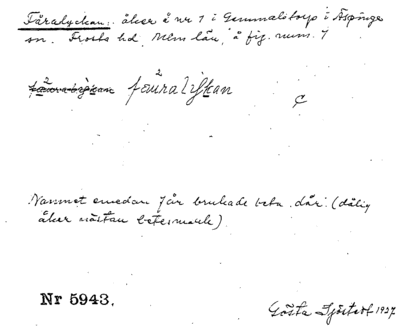 Fåralyckan: åker å nr 1 i Gummalstorp i Äspinge
sn. Frosta hd, Mlm län, å fig. num. 7
fåuralykan
2
Namnet emedan får brukade beta där. (dålig
åker nästan betesmark)
Nr 5943.
Gösta Sjöstedt 1927